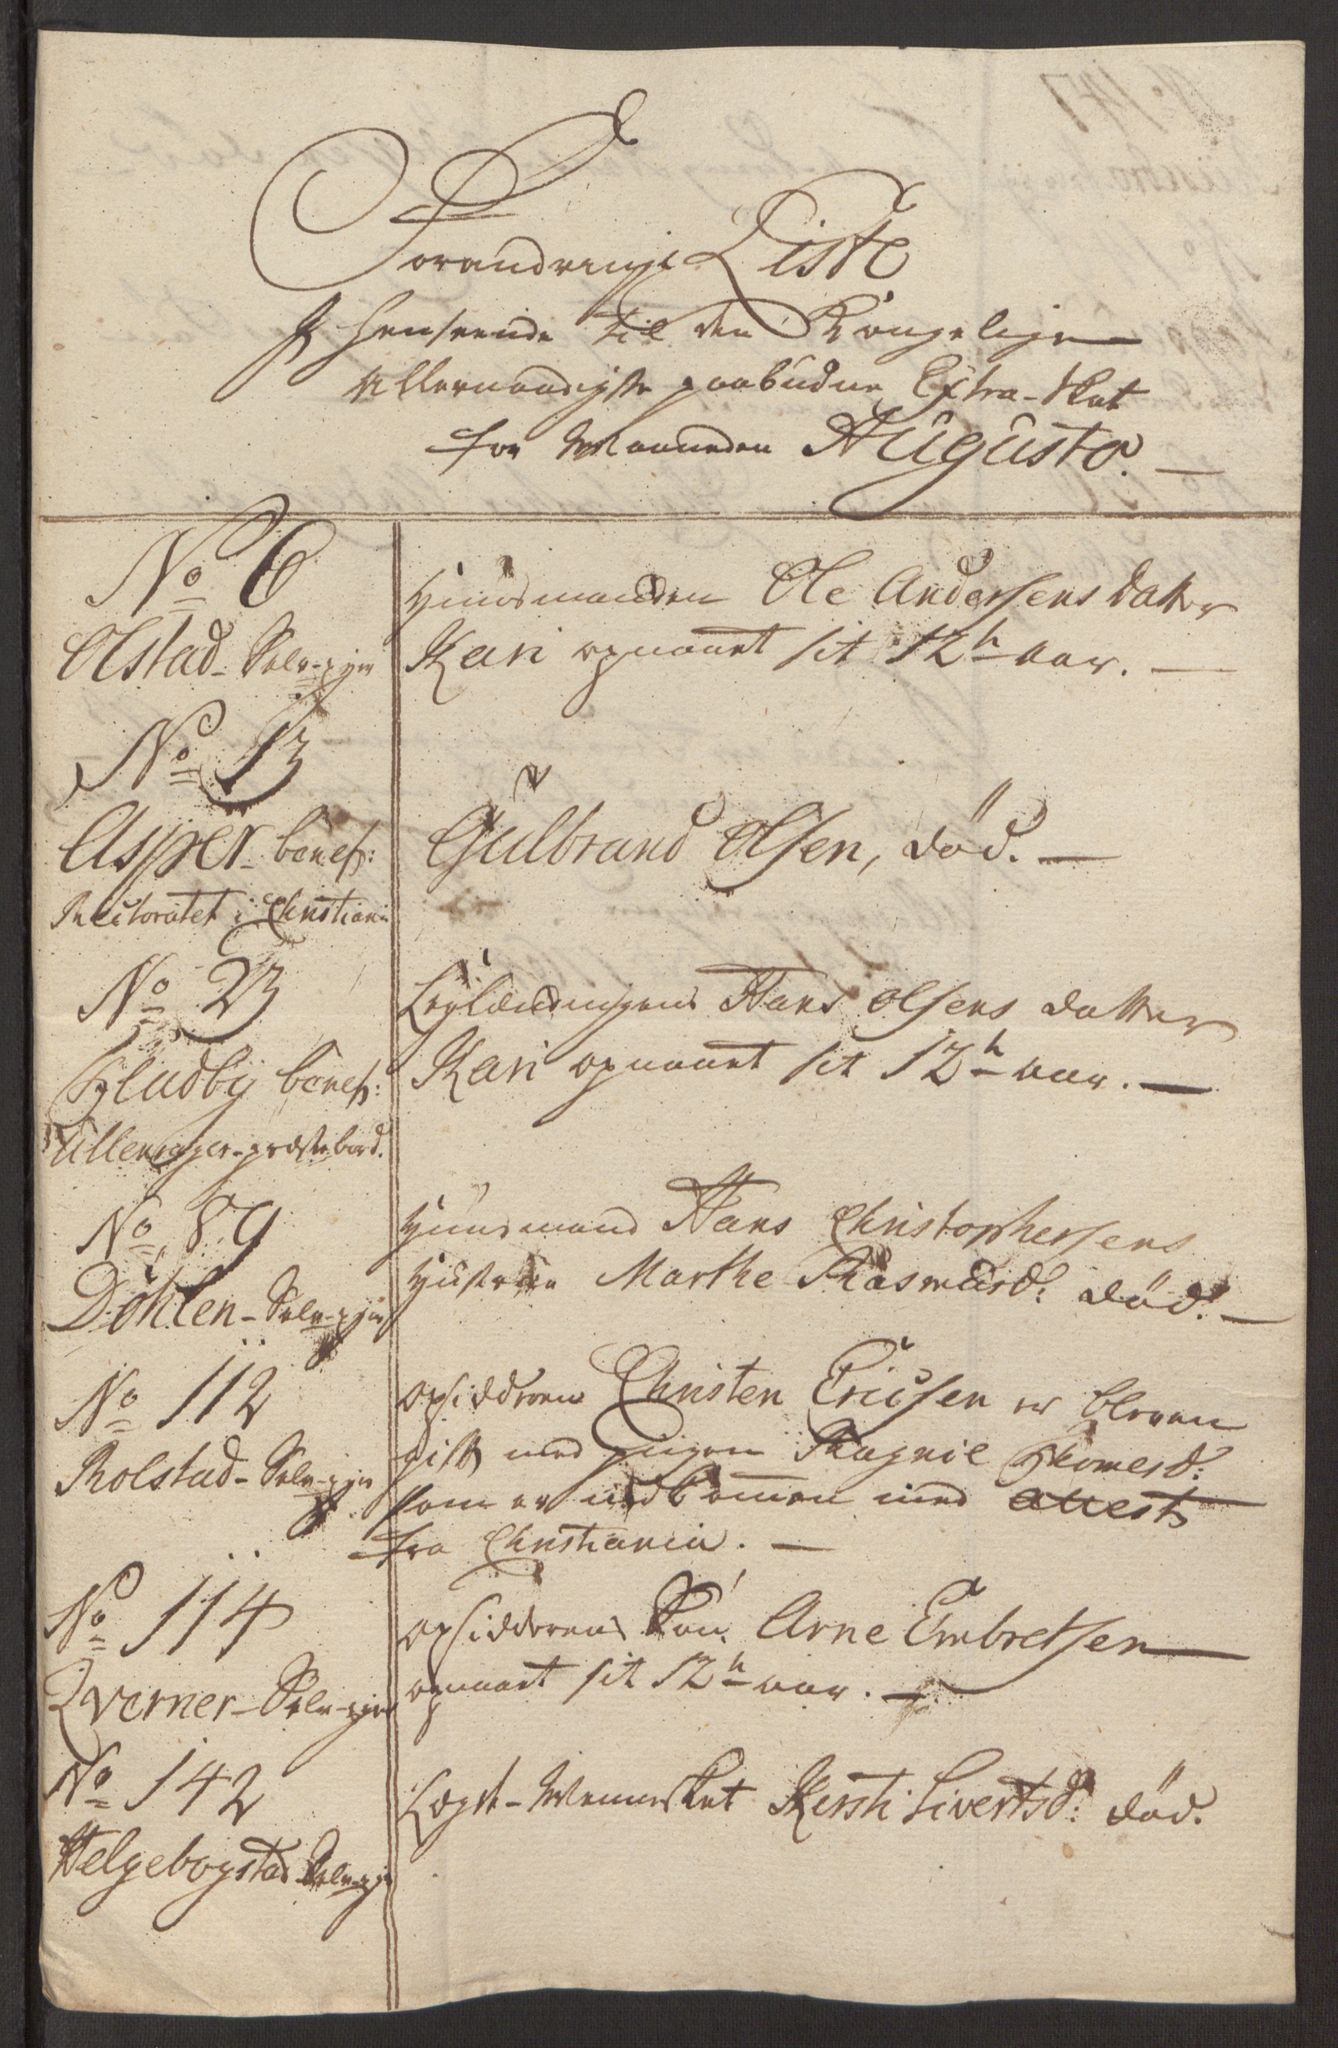 Forandrings Liste
I henseende til den Kongelige
Allernaadigste paabudne Extra-Skat
for Maaneden Augusto.
No 6
Olstad- Selv-ejer
Huusmanden Ole Andersens datter
Kari opnaaet sit 12te aar.
No 13
Asper benef:
Rectoratet i Christiania
Gulbrand Olsen, død.
No 23
Gladby benef:
Ullensager-præstebord.
Leylændingens Hans Olsens datter
Kari opnaaet sit 12te aar.
No 89
Døhlen- Selv-ejer
Huusmand Hans Christophersens
Hustrue Marthe Rasmusd: død.
No 112
Rolstad- Selv-ejer
opsidderen Christen Ericsen er bleven
gift med pigen Ragnil Thomesd:
som er indkommen med attest
fra Christiania.
No 114
Qverner- Selv-ejer
opsidderens Søn Arne Embretsen
opnaaet sit 12te aar.
No 142
Helgebogstad Selv-ejer
Lægd-Mennesket Kersti Sivertsd: død.